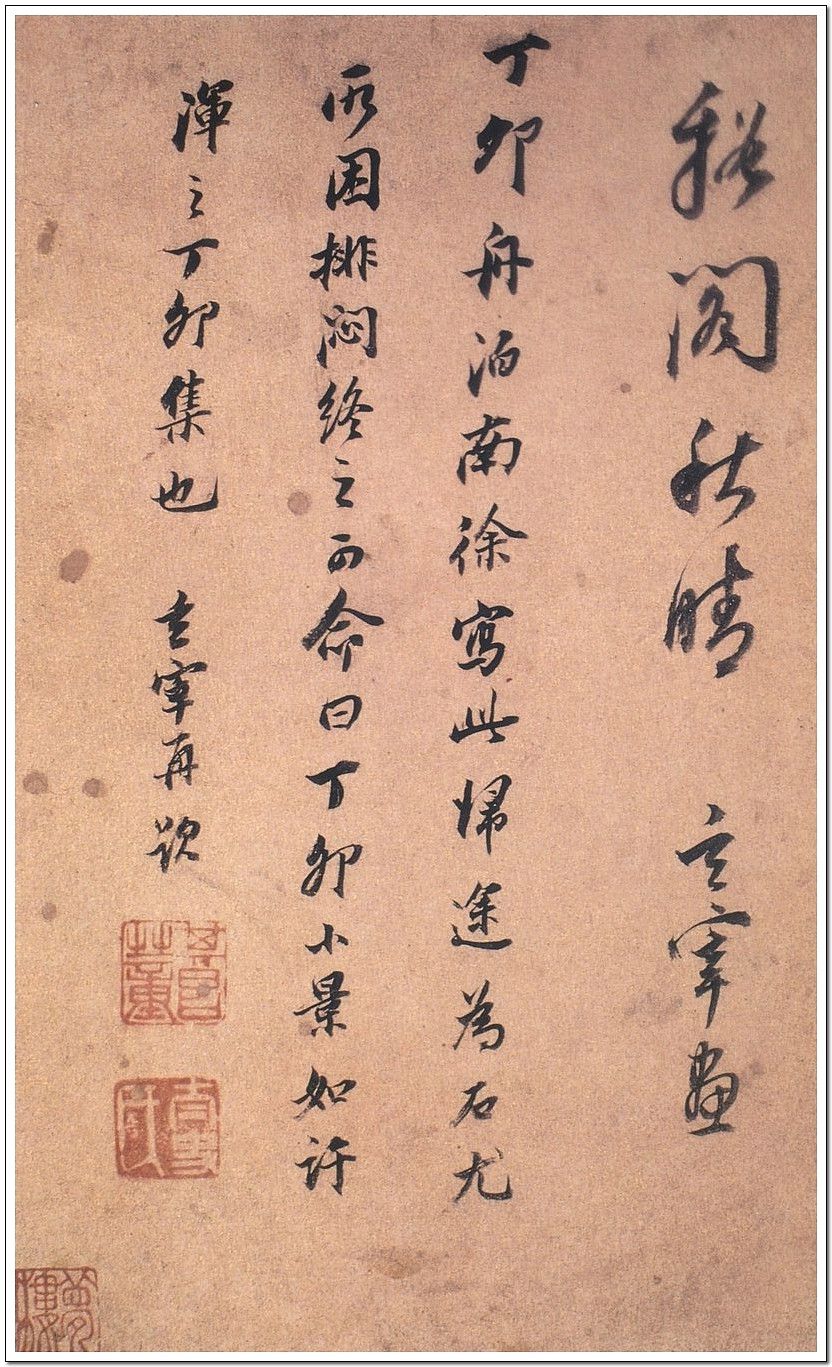 谿閣秋晴 玄宰畫
丁卯舟泊南徐寫此歸途為石尤
所困排悶終之可命曰丁卯小景如許
渾之丁卯集也 玄宰再題
董其昌